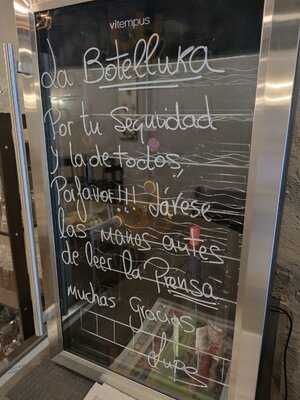 vitempus
La Botelluka
Por tu Seguridad
y la de todos,
Porfavor!!! Lávese
las manos antes
de leer la Prensa
muchas Gracias